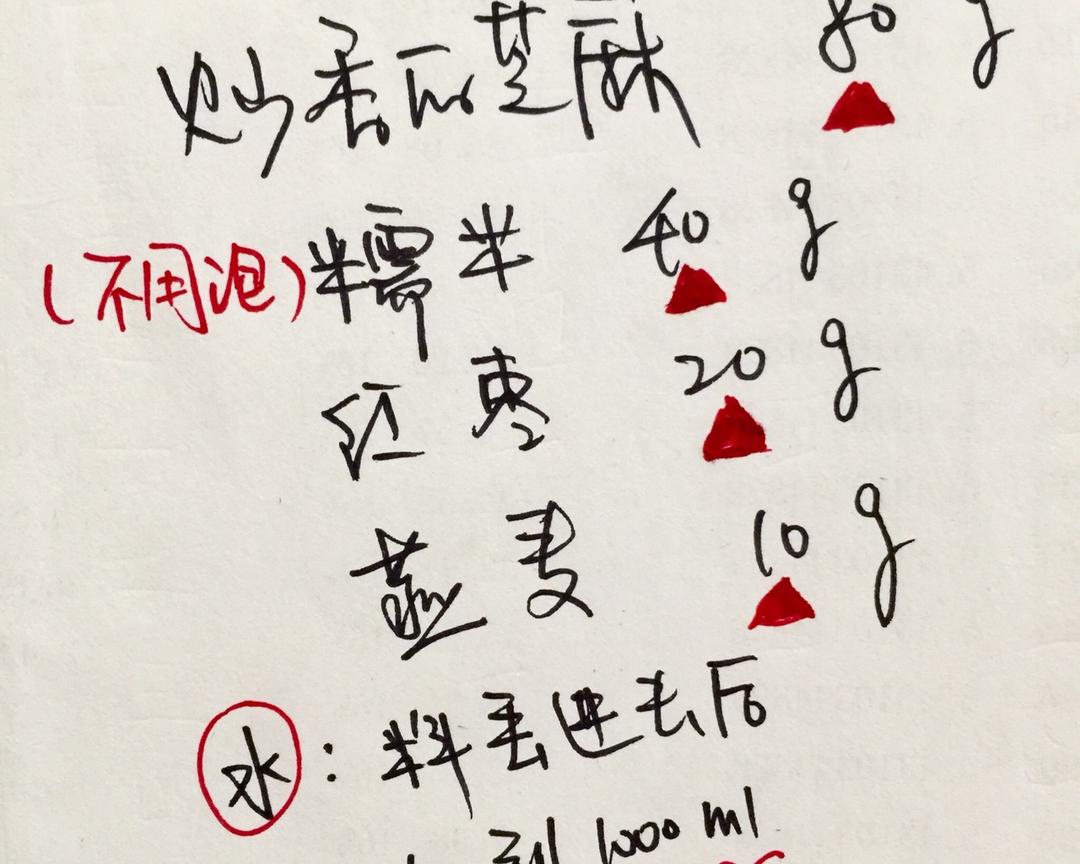 炒香的芝麻 80 g
(不用泡)糯米 40 g
红枣 20 g
燕麦 10 g
水：料丢进去后
到1000 ml